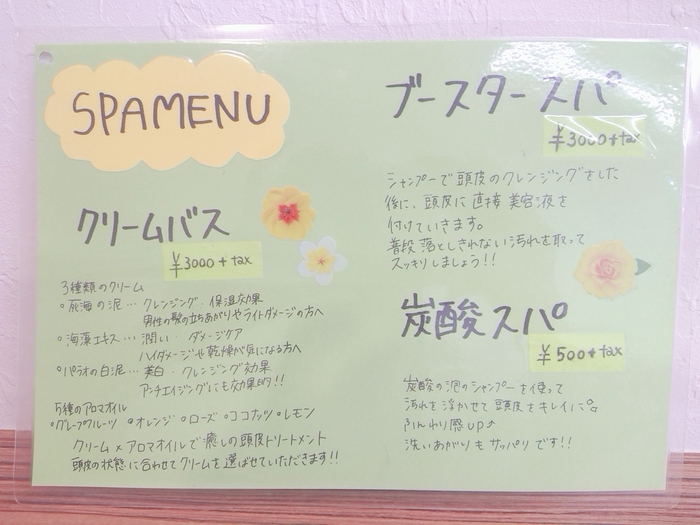 SPAMENU
クリームバス
¥3000+tax
3種類のクリーム
○死海の泥…クレンジング・保湿効果
男性の髪の立ちあがりやライトダメージの方へ
○海藻エキス…潤い・ダメージケア
ハイダメージや乾燥が気になる方へ
○パラオの白泥…美白・クレンジング効果
アンチエイジングにも効果的!!
5種のアロマオイル
○グレープフルーツ ○オレンジ ○ローズ ○ココナッツ ○レモン
クリーム×アロマオイルで癒しの頭皮トリートメント
頭皮の状態に合わせてクリームを選ばせていただきます!!
ブースタースパ
¥3000+tax
シャンプーで頭皮のクレンジングをした
後に、頭皮に直接美容液を
付けていきます。
普段落としきれない汚れを取って
スッキリしましょう!!
炭酸スパ
¥500+tax
炭酸の泡のシャンプーを使って
汚れを浮かせて頭皮をキレイに。
ふんわり感UP♪
洗いあがりもサッパリです!!